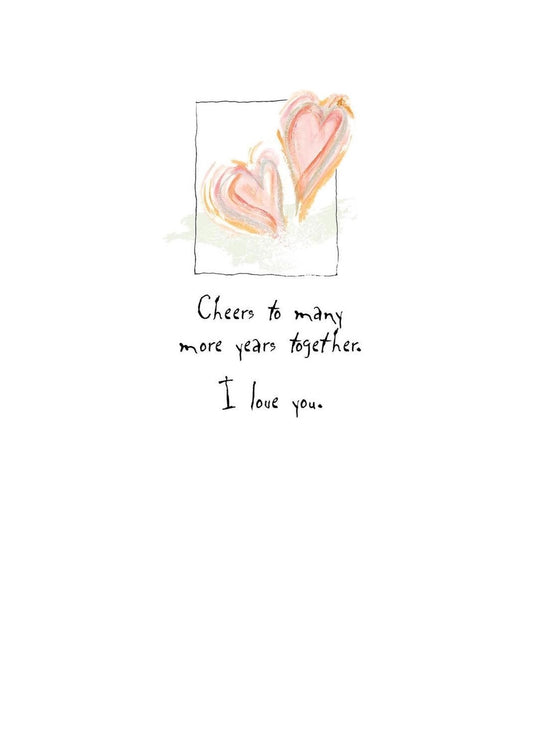 Cheers to many
more years together.
I love you.